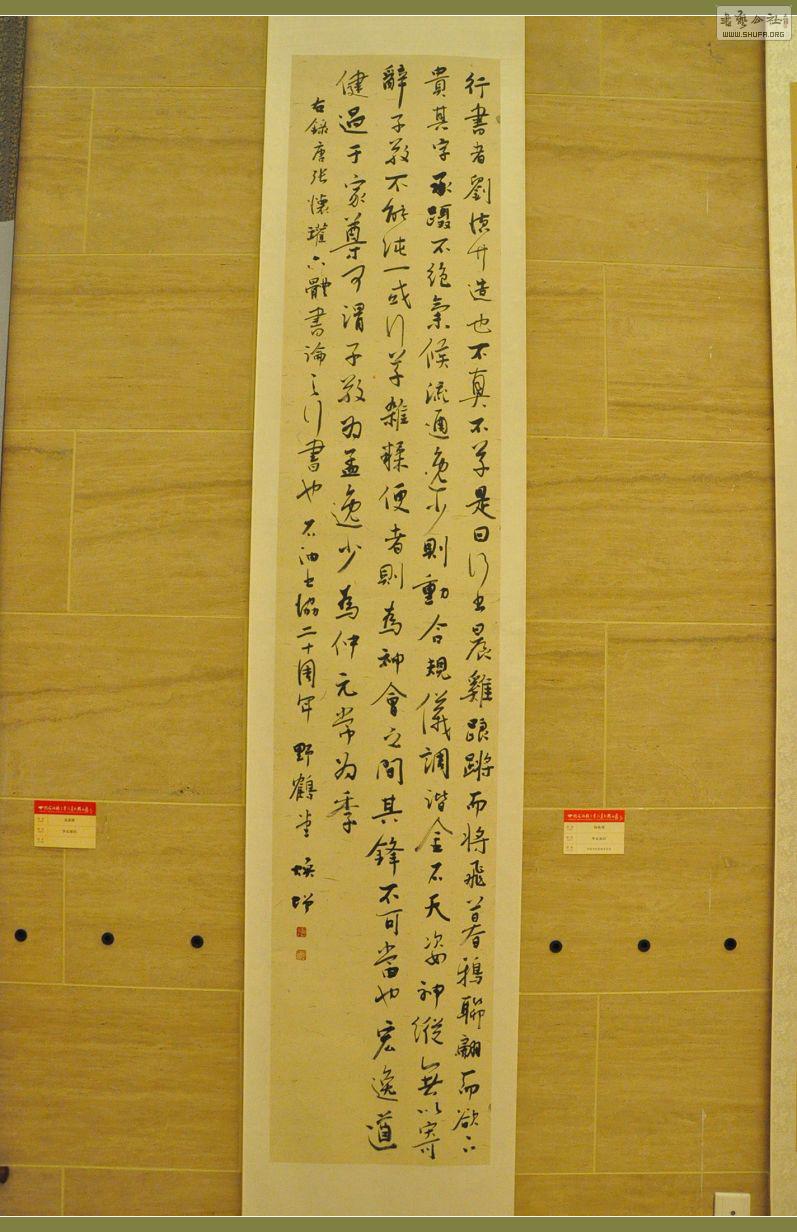 書藝公社
WWW.SHUFA.ORG
行書者劉德升造也不真不草是曰行书晨雞踉蹡而將飛暮鴉聯翩而欲下
貴其字承躡不絕氣候流通逸少則動合規儀調諧金石天姿神縱無以寄
辭子敬不能純一或行草雜糅便者則為神會之間其鋒不可當也宏逸遒
健過于家尊可謂子敬為孟逸少為仲元常為季
右錄唐張懷瓘六體書論之行書也石油书協二十周年野鶴堂